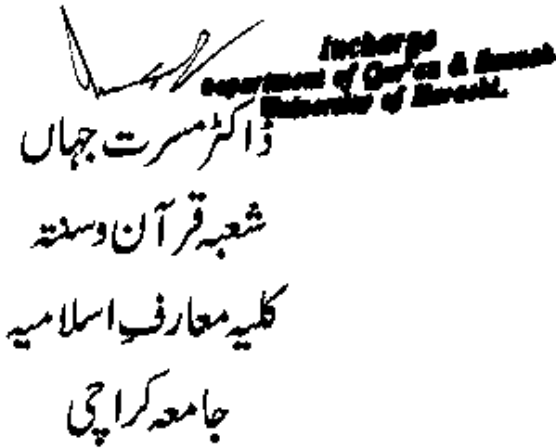 Incharge
Department of Qur'an & Sunnah
University of Karachi.
ڈاکٹر مسرت جہاں
شعبہ قرآن و سنتہ
کلیہ معارفِ اسلامیہ
جامعہ کراچی